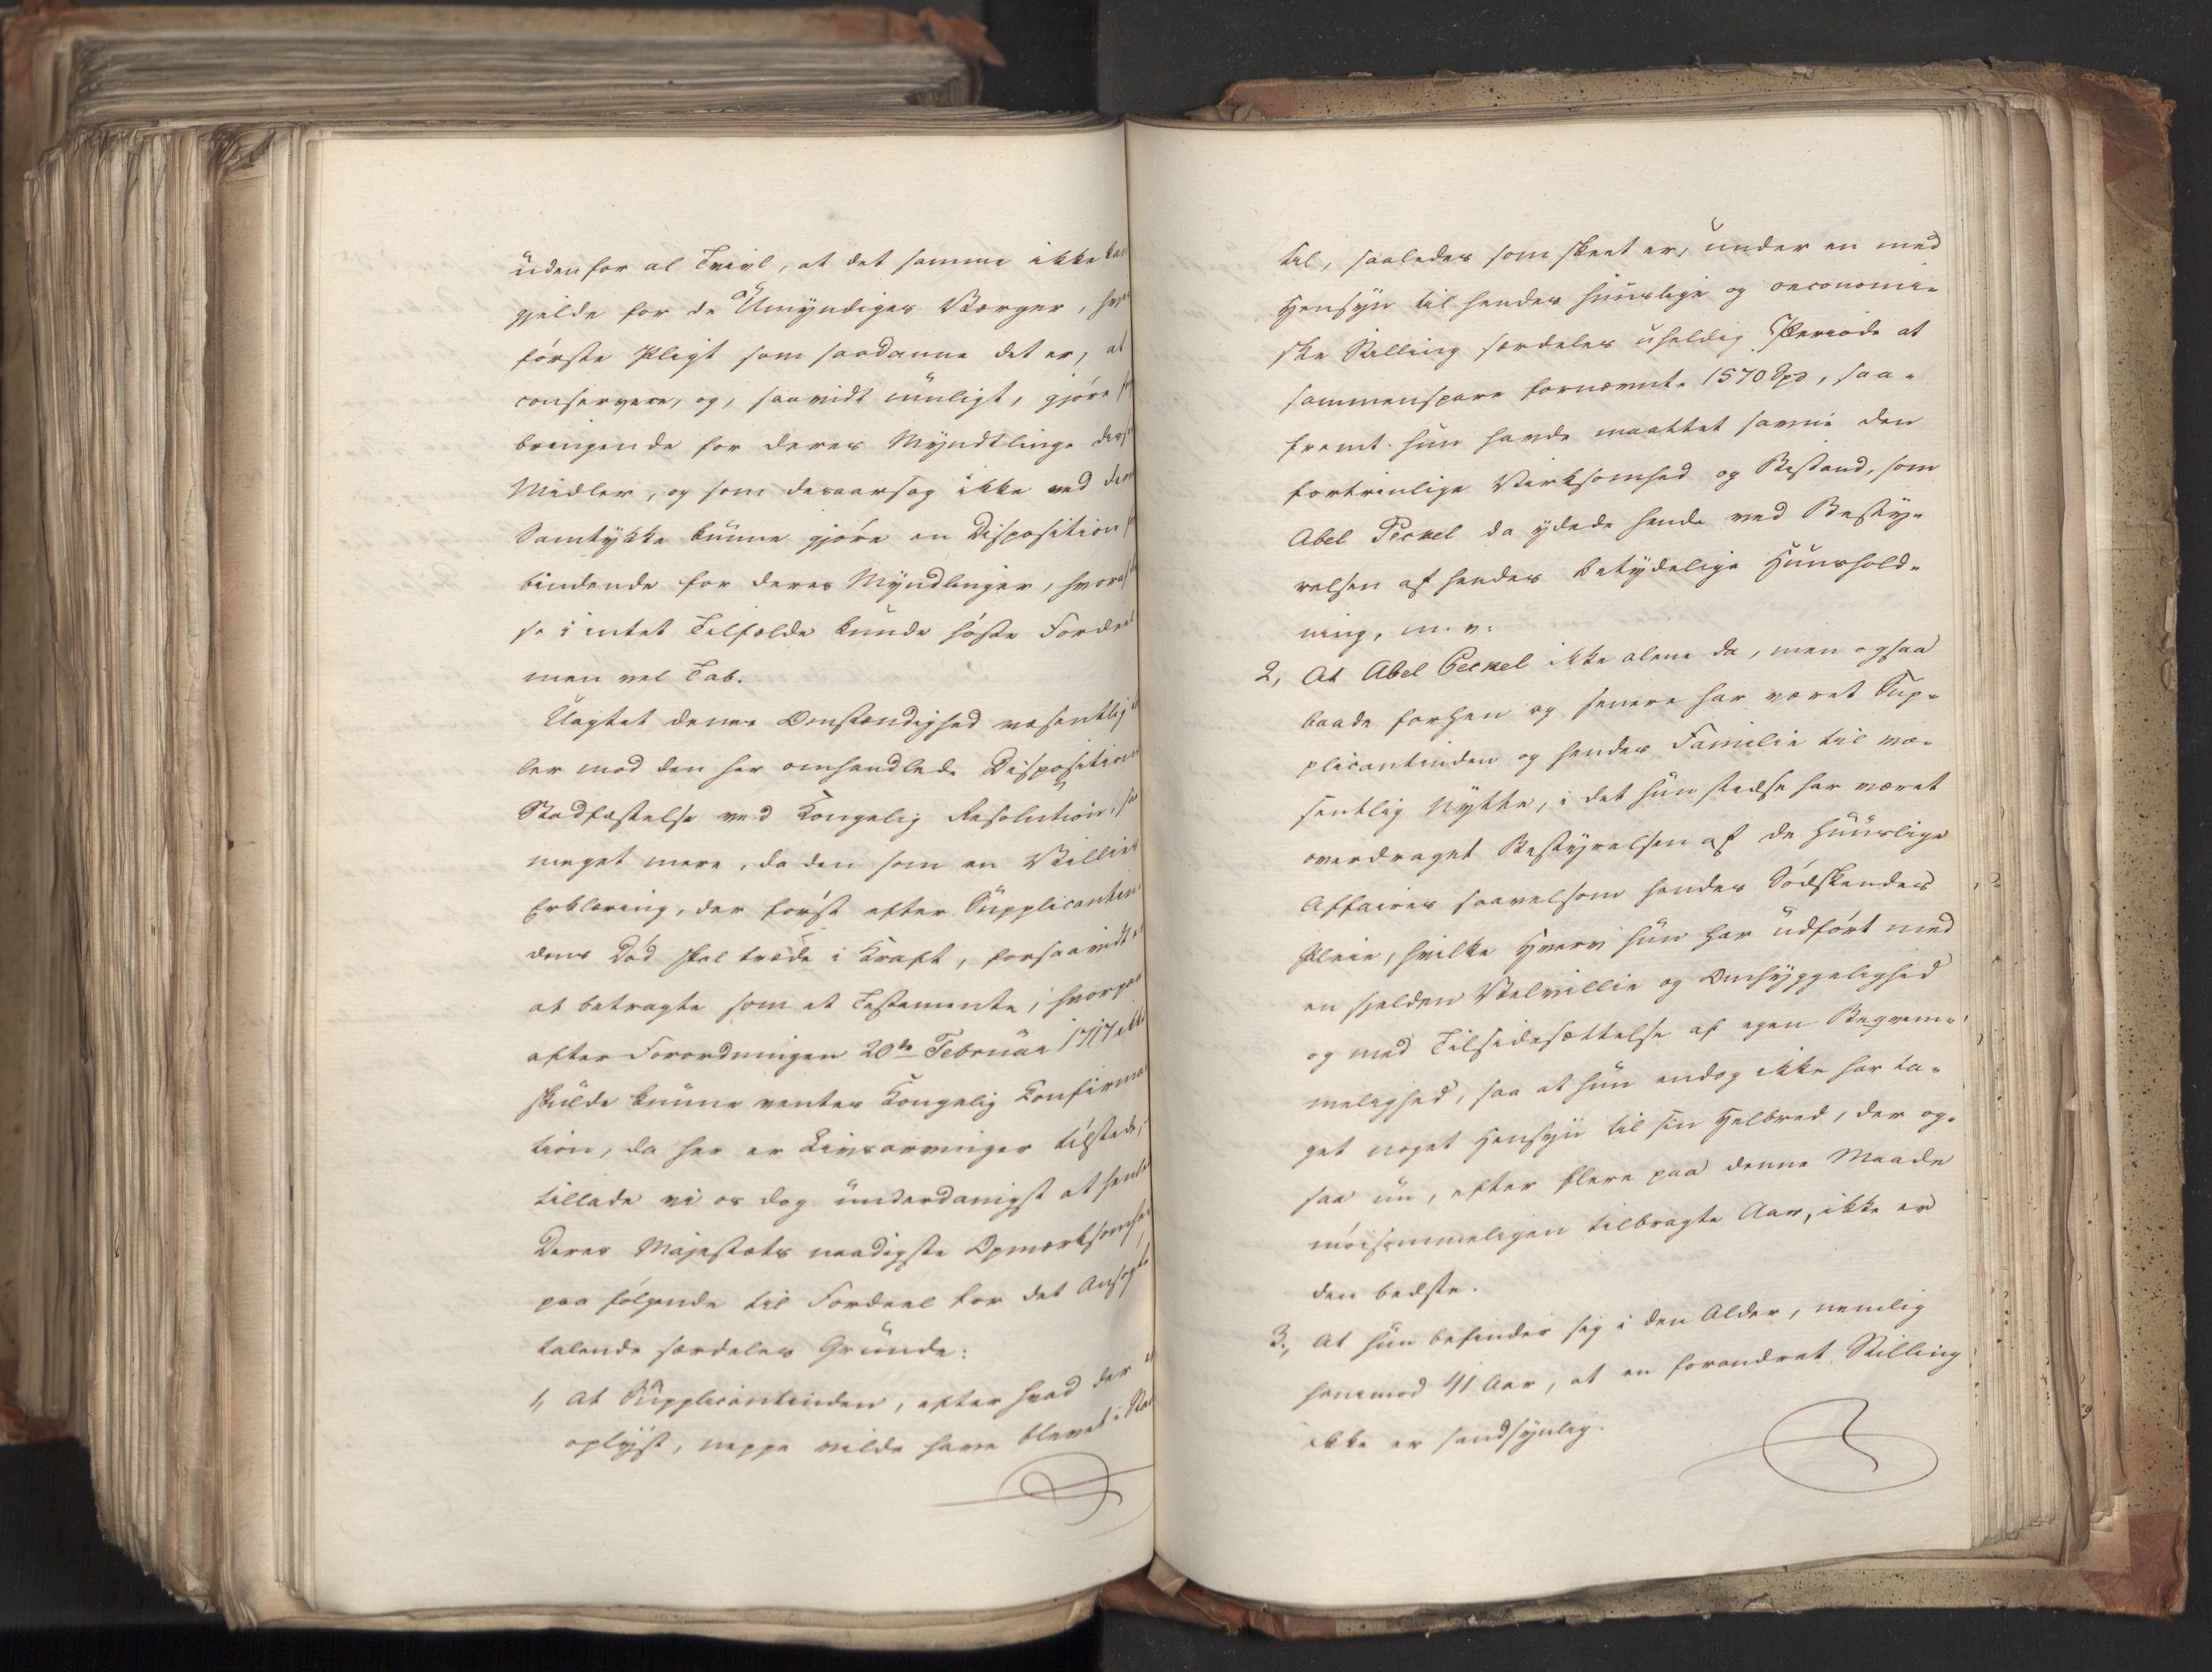 udenfor al Tvivl, at det samme ikke kan
gjelde for de Umyndiges Værger, hvis
første Pligt som saadanne det er, at
conservere, og, saavidt muligt, gjøre
bringende for deres Myndtlinge disses
Midler, og som desaarsag ikke ved deres
Samtykke kunne gjøre en Disposition
bindende for deres Myndlinger, hvoraf
se i intet Tilfælde kunde høste Fordeel
men vel Tab.
Uagtet denne Omstændighed væsentlig
ler mod den her omhandlede Dispositions
Stadfæstelse ved Kongelig Resolution, saa
meget mere, da den som en Villies
Erklæring, der først efter Supplicantin-
dens Død skal træde i Kraft, forsaavidt er
at betragte som et Testamente, hvorpaa
efter Forordningen 20de Februar 1717 ikke
skulde kunne ventes Kongelig Confirma-
tion, da her er Livsarvinger tilstede,
tillade vi os dog underdanigst at henlede
Deres Majestæts naadigste Opmærksomhed
paa følgende til Fordeel for det Ansøgte
talende særdeles Grunde:
1, At Supplicantinden, efter hvad der er
oplyst, neppe vilde have blevet i Stand
til, saaledes som skeet er, under en med
Hensyn til hendes huuslige og oeconomi-
ske Stilling særdeles uheldig Periode at
sammenspare fornævnte 1570 Spd, saa-
fremt hun havde maattet savne den
fortrinlige Virksomhed og Bistand, som
Abel Peckel da ydede hende ved Besty-
relsen af hendes betydelige Huushold-
ning, m. v.
2, At Abel Peckel ikke alene da, men ogsaa
baade forhen og senere har været Sup-
plicantinden og hendes Familie til væ-
sentlig Nytte, i det hun stedse har været
overdraget Bestyrelsen af de huuslige
Affairer saavelsom hendes Sødskendes
Pleie, hvilke Hverv hun har udført med
en sjelden Velvillie og Omhyggelighed
og med Tilsidesættelse af egen Beqvem-
melighed, saa at hun endog ikke har ta-
get noget Hensyn til sin Helbred, der og-
saa nu, efter flere paa denne Maade
møisommeligen tilbragte Aar, ikke er
den bedste.
3, At hun befinder sig i den Alder, nemlig
henimod 41 Aar, at en forandret Stilling
ikke er sandsynlig.